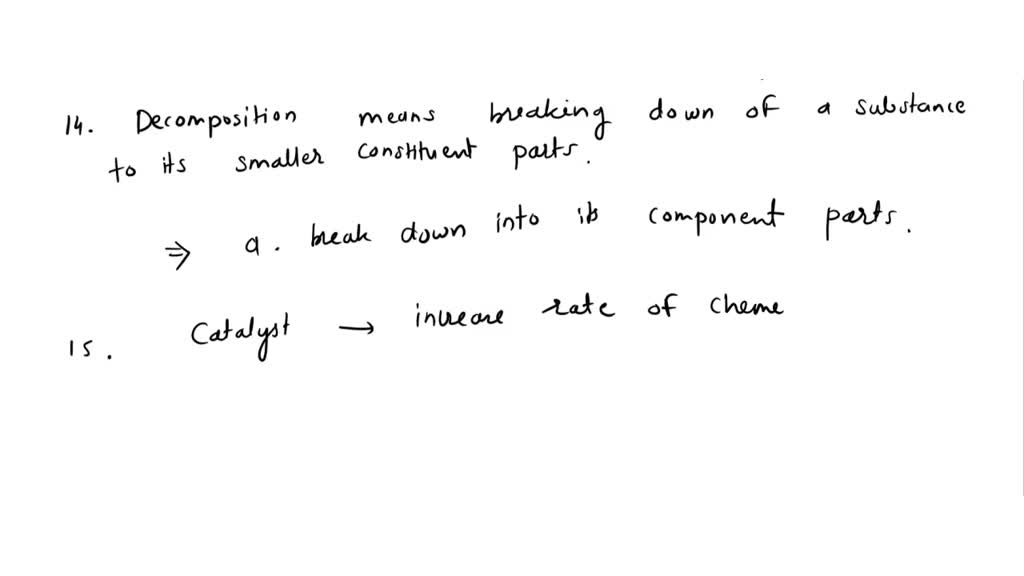 14. Decomposition means breaking down of a substance
to its smaller constituent parts.
⇒ a. break down into its component parts.
15. Catalyst → increase rate of cheme